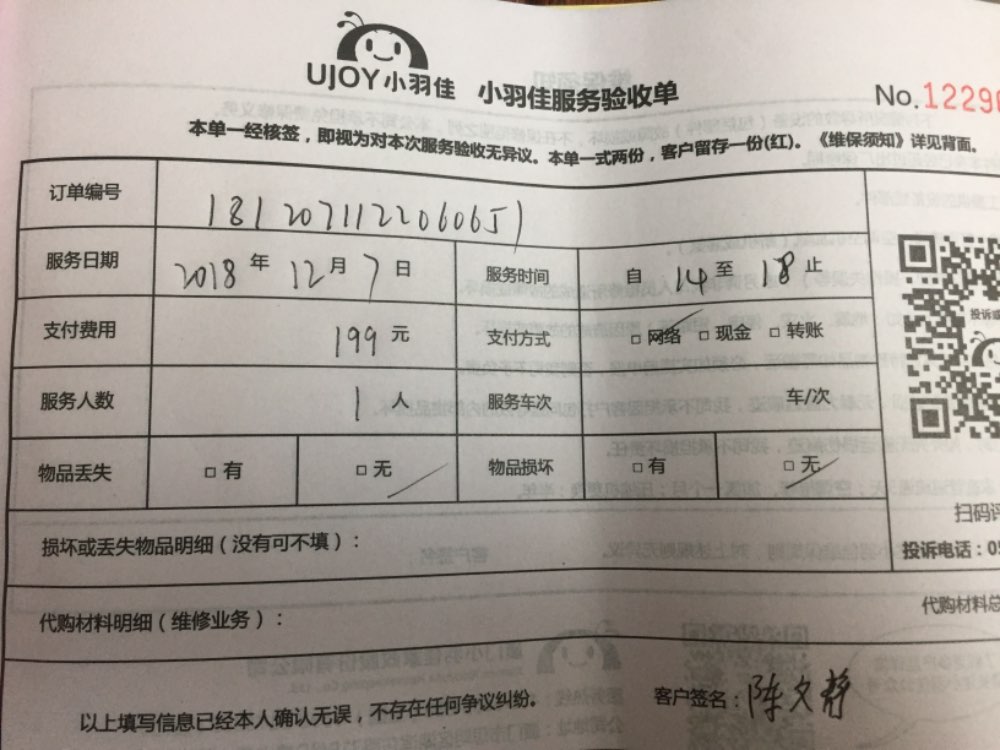 UJOY小羽佳 小羽佳服务验收单 No.1229
本单一经核签，即视为对本次服务验收无异议。本单一式两份，客户留存一份(红)。《维保须知》详见背面。
订单编号 1812071122060651
服务日期 2018 年 12 月 7 日 服务时间 自 14 至 18 止
支付费用 199 元 支付方式 □ 网络 □ 现金 □ 转账
投诉或
服务人数 1 人 服务车次 车/次
物品丢失 □ 有 □ 无 物品损坏 □ 有 □ 无
扫码评
损坏或丢失物品明细（没有可不填）： 投诉电话：05
代购材料明细（维修业务）： 代购材料总
以上填写信息已经本人确认无误，不存在任何争议纠纷。 客户签名：陈文静